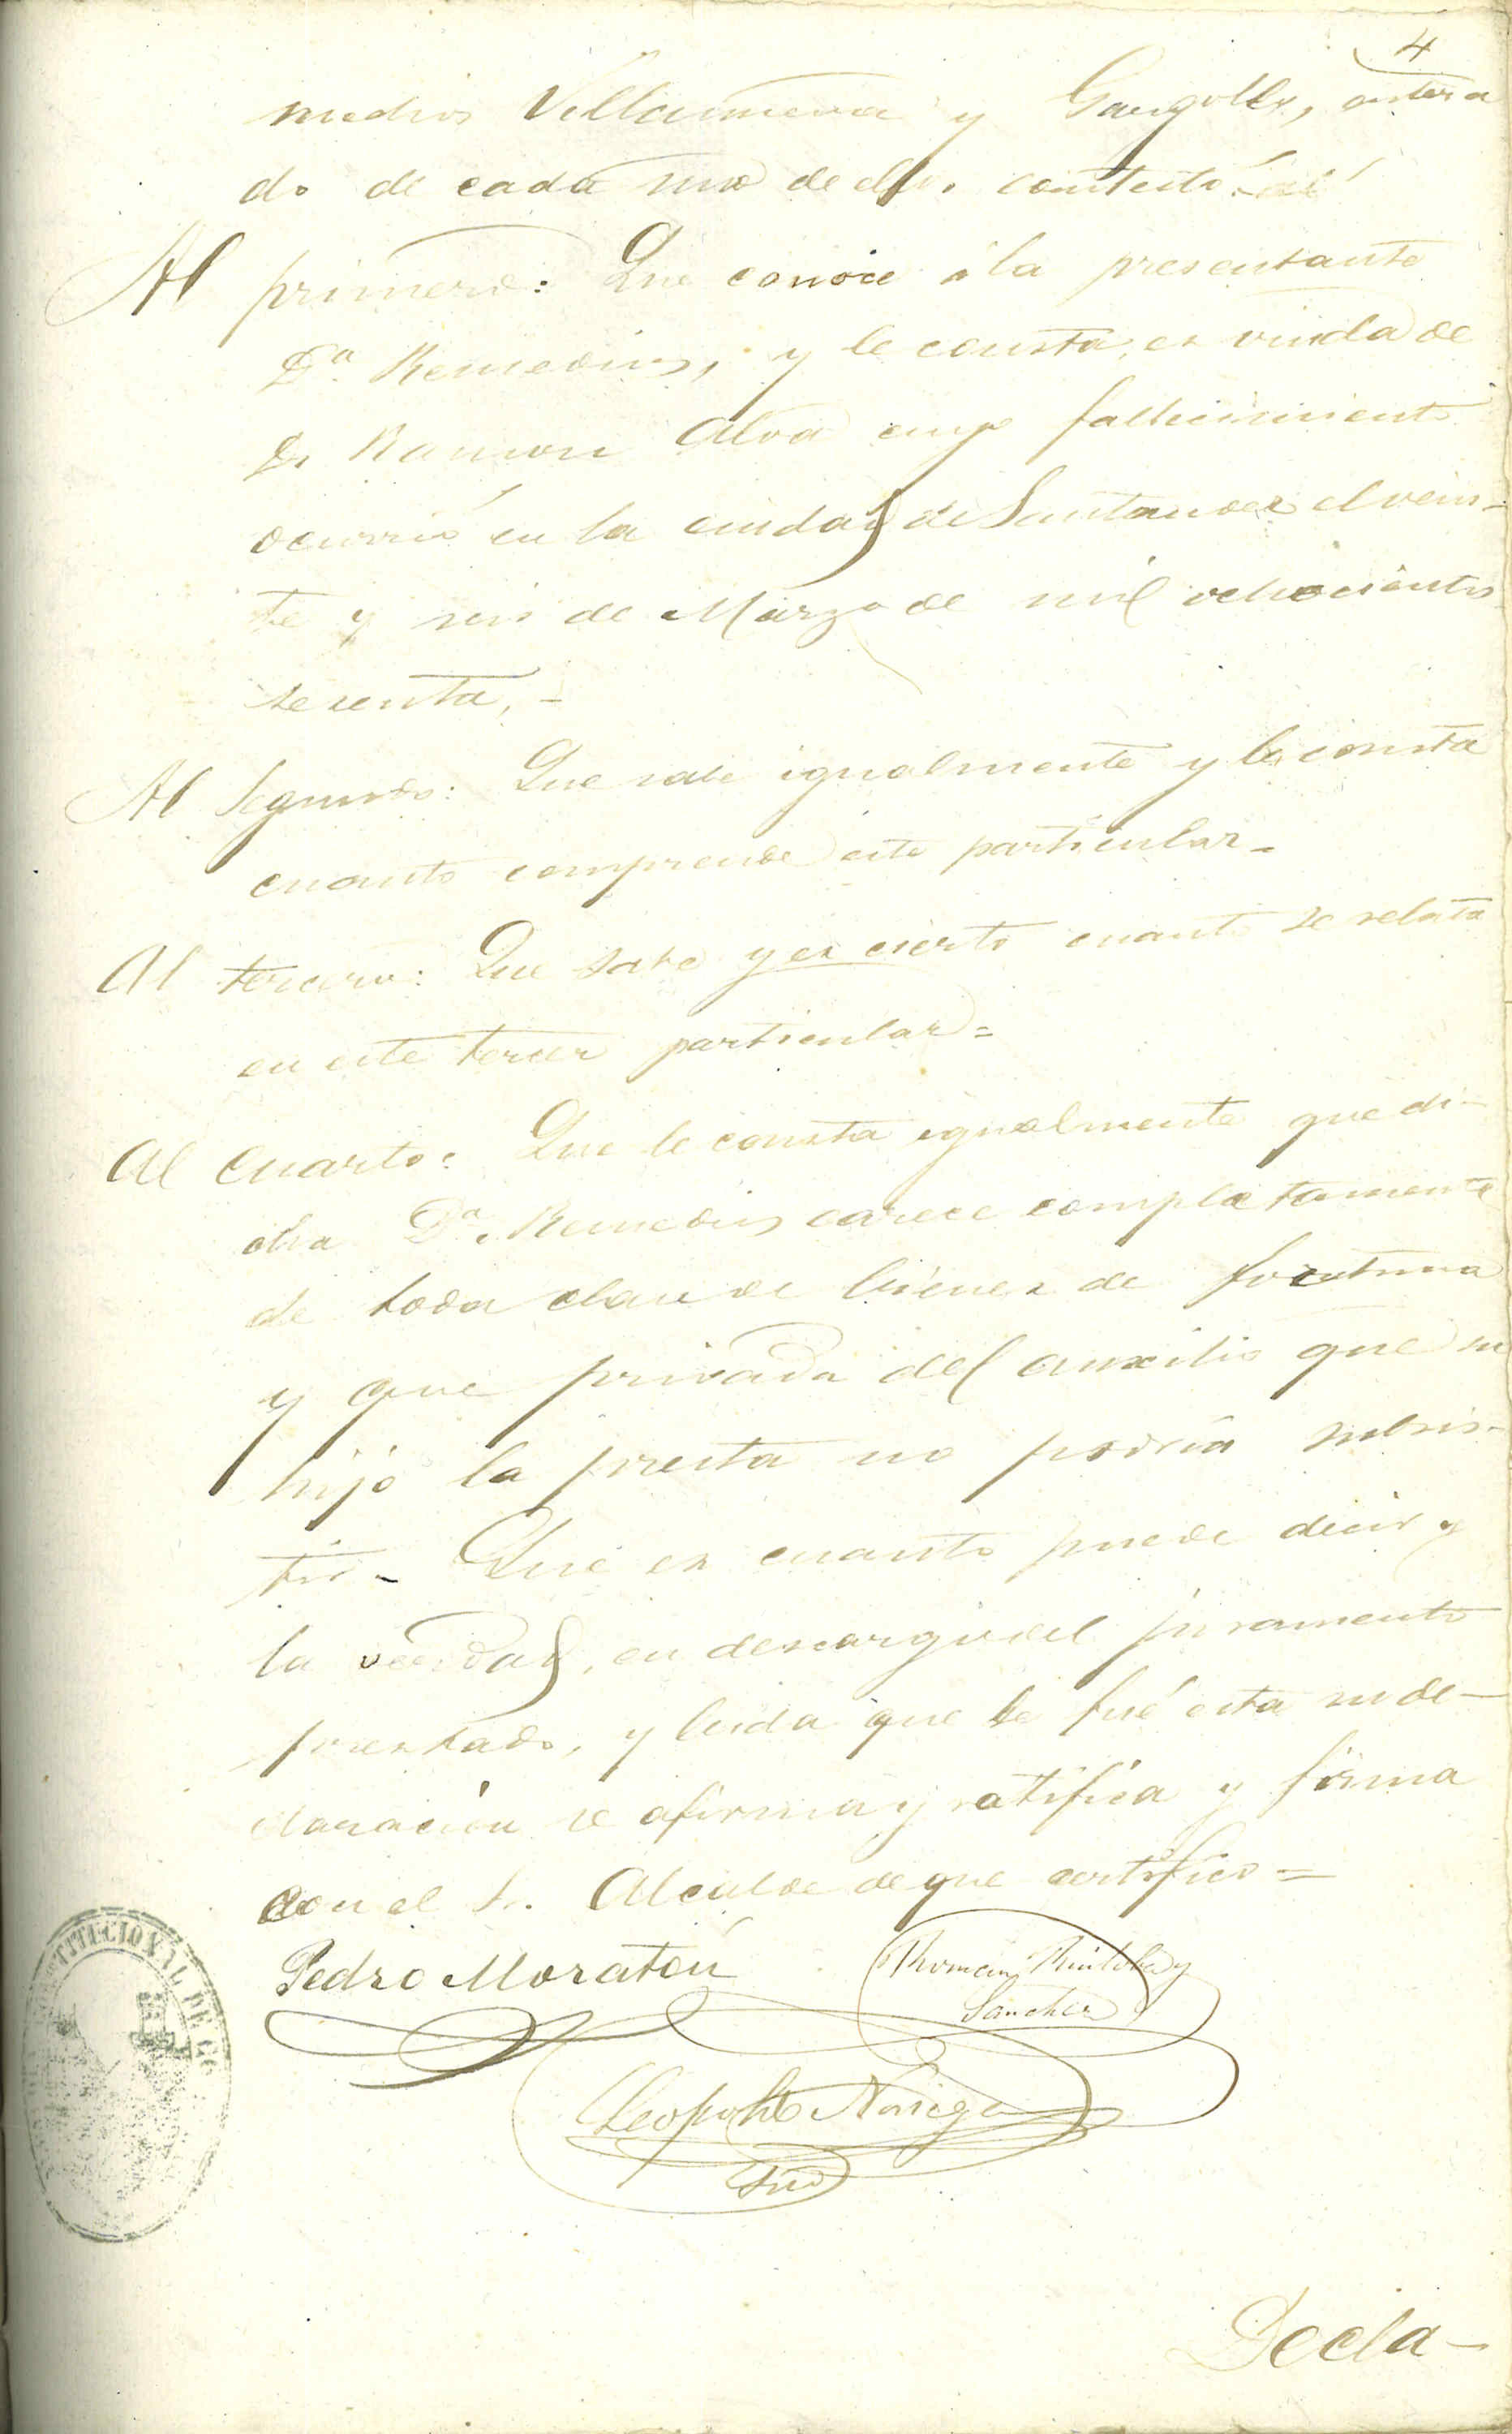 4
medios Villanueva y Gargollo, entera
do de cada uno de ellos contestó.
Al primero: Que conoce á la presentante
Dª. Remedios, y le consta, es viuda de
Dn Ramon Alva cuyo fallecimiento
ocurrió en la ciudad de Santander el vein-
te y seis de Marzo de mil ochocientos
sesenta, -
Al Segundo: Que sabe igualmente y le consta
cuanto comprende este particular -
Al tercero: Que sabe y es cierto cuanto se relata
en este tercer particular =
Al Cuarto: Que le consta igualmente que di-
cha Dª. Remedios carece completamente
de toda clase de bienes de fortuna
y que privada del auxilio que su
hijo la presta no podría subsis-
tir - Que es cuanto puede decir y
la verdad, en descargo del juramento
prestado, y leida que le fué esta su de-
claración se afirma y ratifica y firma
con el Sr. Alcalde de que certifico =
Pedro Moratón
Roman y
Sanchez
Leopoldo Noriega
Srio
TITUCIONAL DE
Decla-